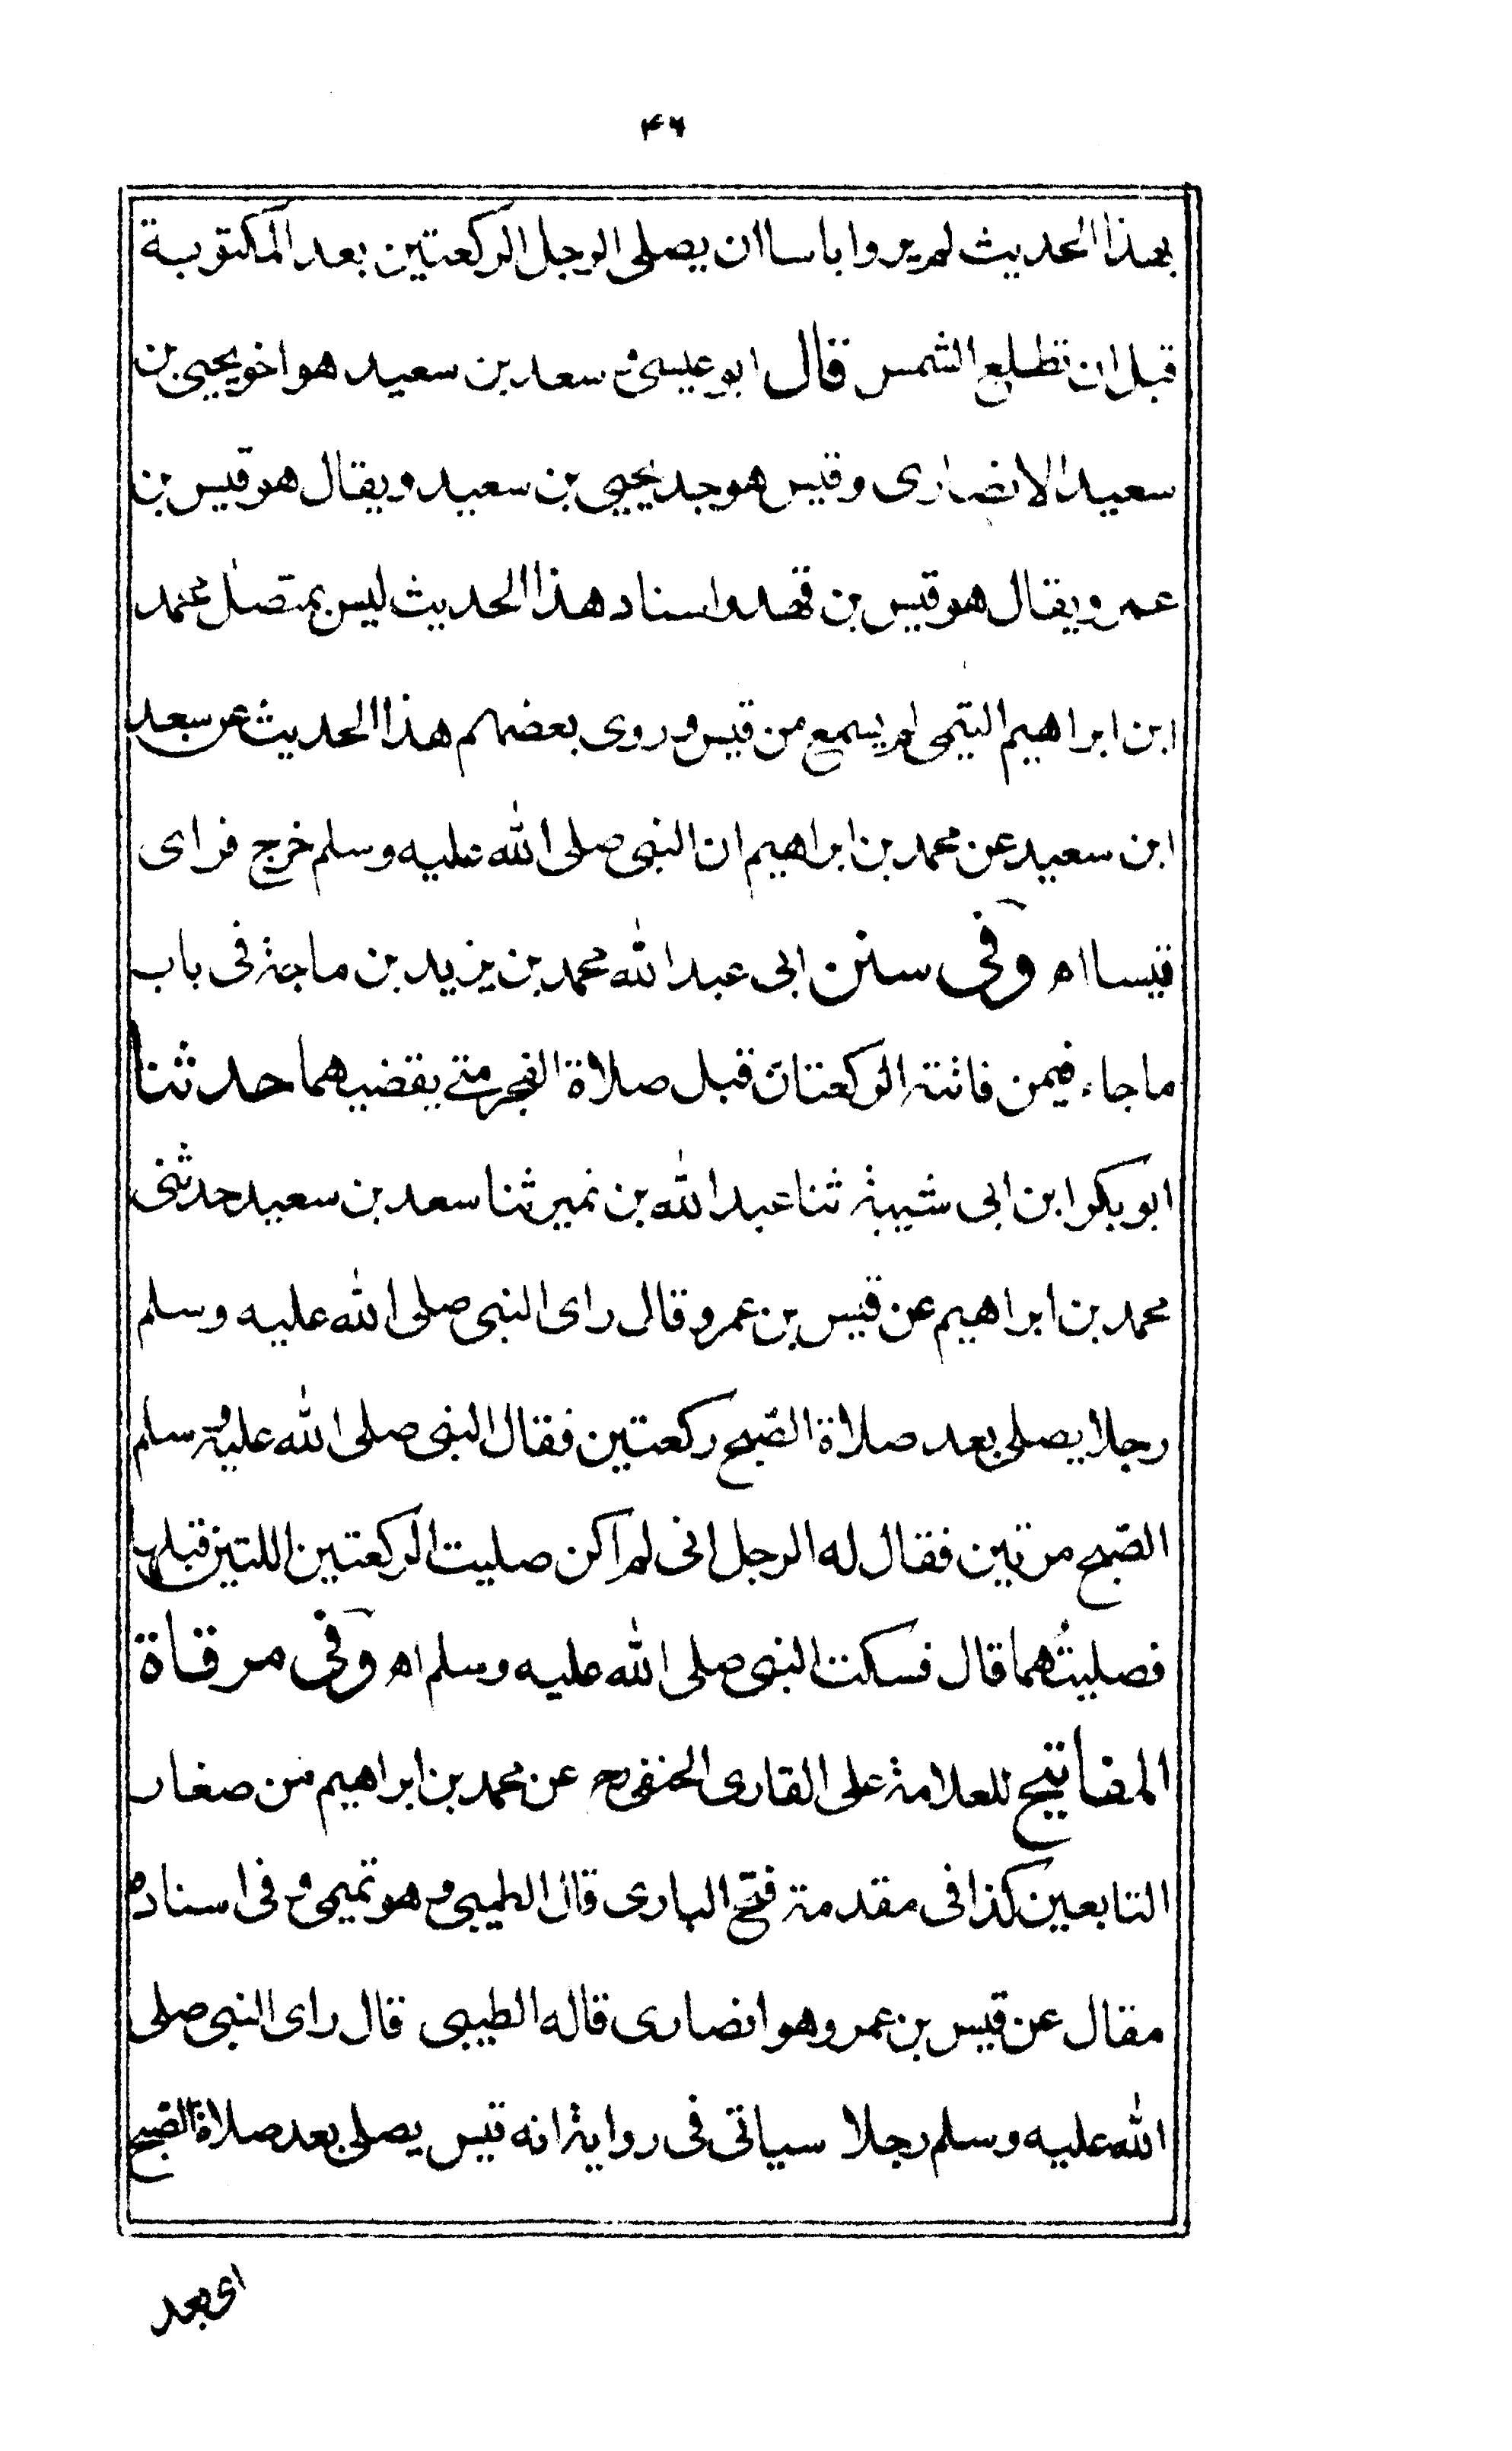 ۴۶
بهذا الحديث لم يروا باسا ان يصلى الرجل الركعتين بعد المكتوبة
قبل ان تطلع الشمس قال ابو عيسى و سعد بن سعيد هو اخو يحيى بن
سعيد الانصارى وقيس هو جد يحيى بن سعيد ويقال هو قيس بن
عمر و يقال هو قيس بن قهد واسناد هذا الحديث ليس بمتصل محمد
ابن ابراهيم التيمى لم يسمع من قيس وروى بعضهم هذا الحديث عن سعد
ابن سعيد عن محمد بن ابراهيم ان النبى صلى الله عليه وسلم خرج فراى
قيسا اه وفى سنن ابى عبد الله محمد بن يزيد بن ماجة فى باب
ما جاء فيمن فاتته الركعتان قبل صلاة الفجر متى يقضيهما حدثنا
ابو بكر ابن ابى شيبة ثنا عبد الله بن نمير ثنا سعد بن سعيد حدثنى
محمد بن ابراهيم عن قيس بن عمرو قال راى النبى صلى الله عليه وسلم
رجلا يصلى بعد صلاة الصّبح ركعتين فقال النبى صلى الله عليه وسلم
الصّبح مرتين فقال له الرجل انى لم اكن صليت الركعتين اللتين قبلها
فصليتُهما قال فسكت النبى صلى الله عليه وسلم اه وفى مرقاة
المفاتيح للعلامة على القارى الحنفى رح عن محمد بن ابراهيم من صغار
التابعين كذا فى مقدمة فتح البارى قال الطيبى و هو تميمى و فى اسناده
مقال عن قيس بن عمرو وهو انصارى قاله الطيبى قال راى النبى صلى
الله عليه وسلم رجلا سياتى فى رواية انه قيس يصلى بعد صلاة الصّبح
اى بعد